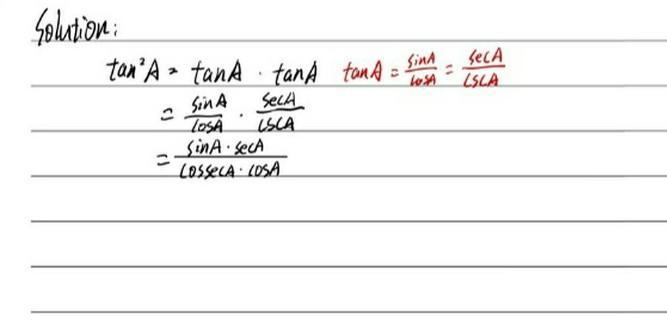 Solution:
tan²A = tanA · tanA tanA = sinA/cosA = secA/cscA
= sinA/cosA · secA/cscA
= sinA·secA/cossecA·cosA